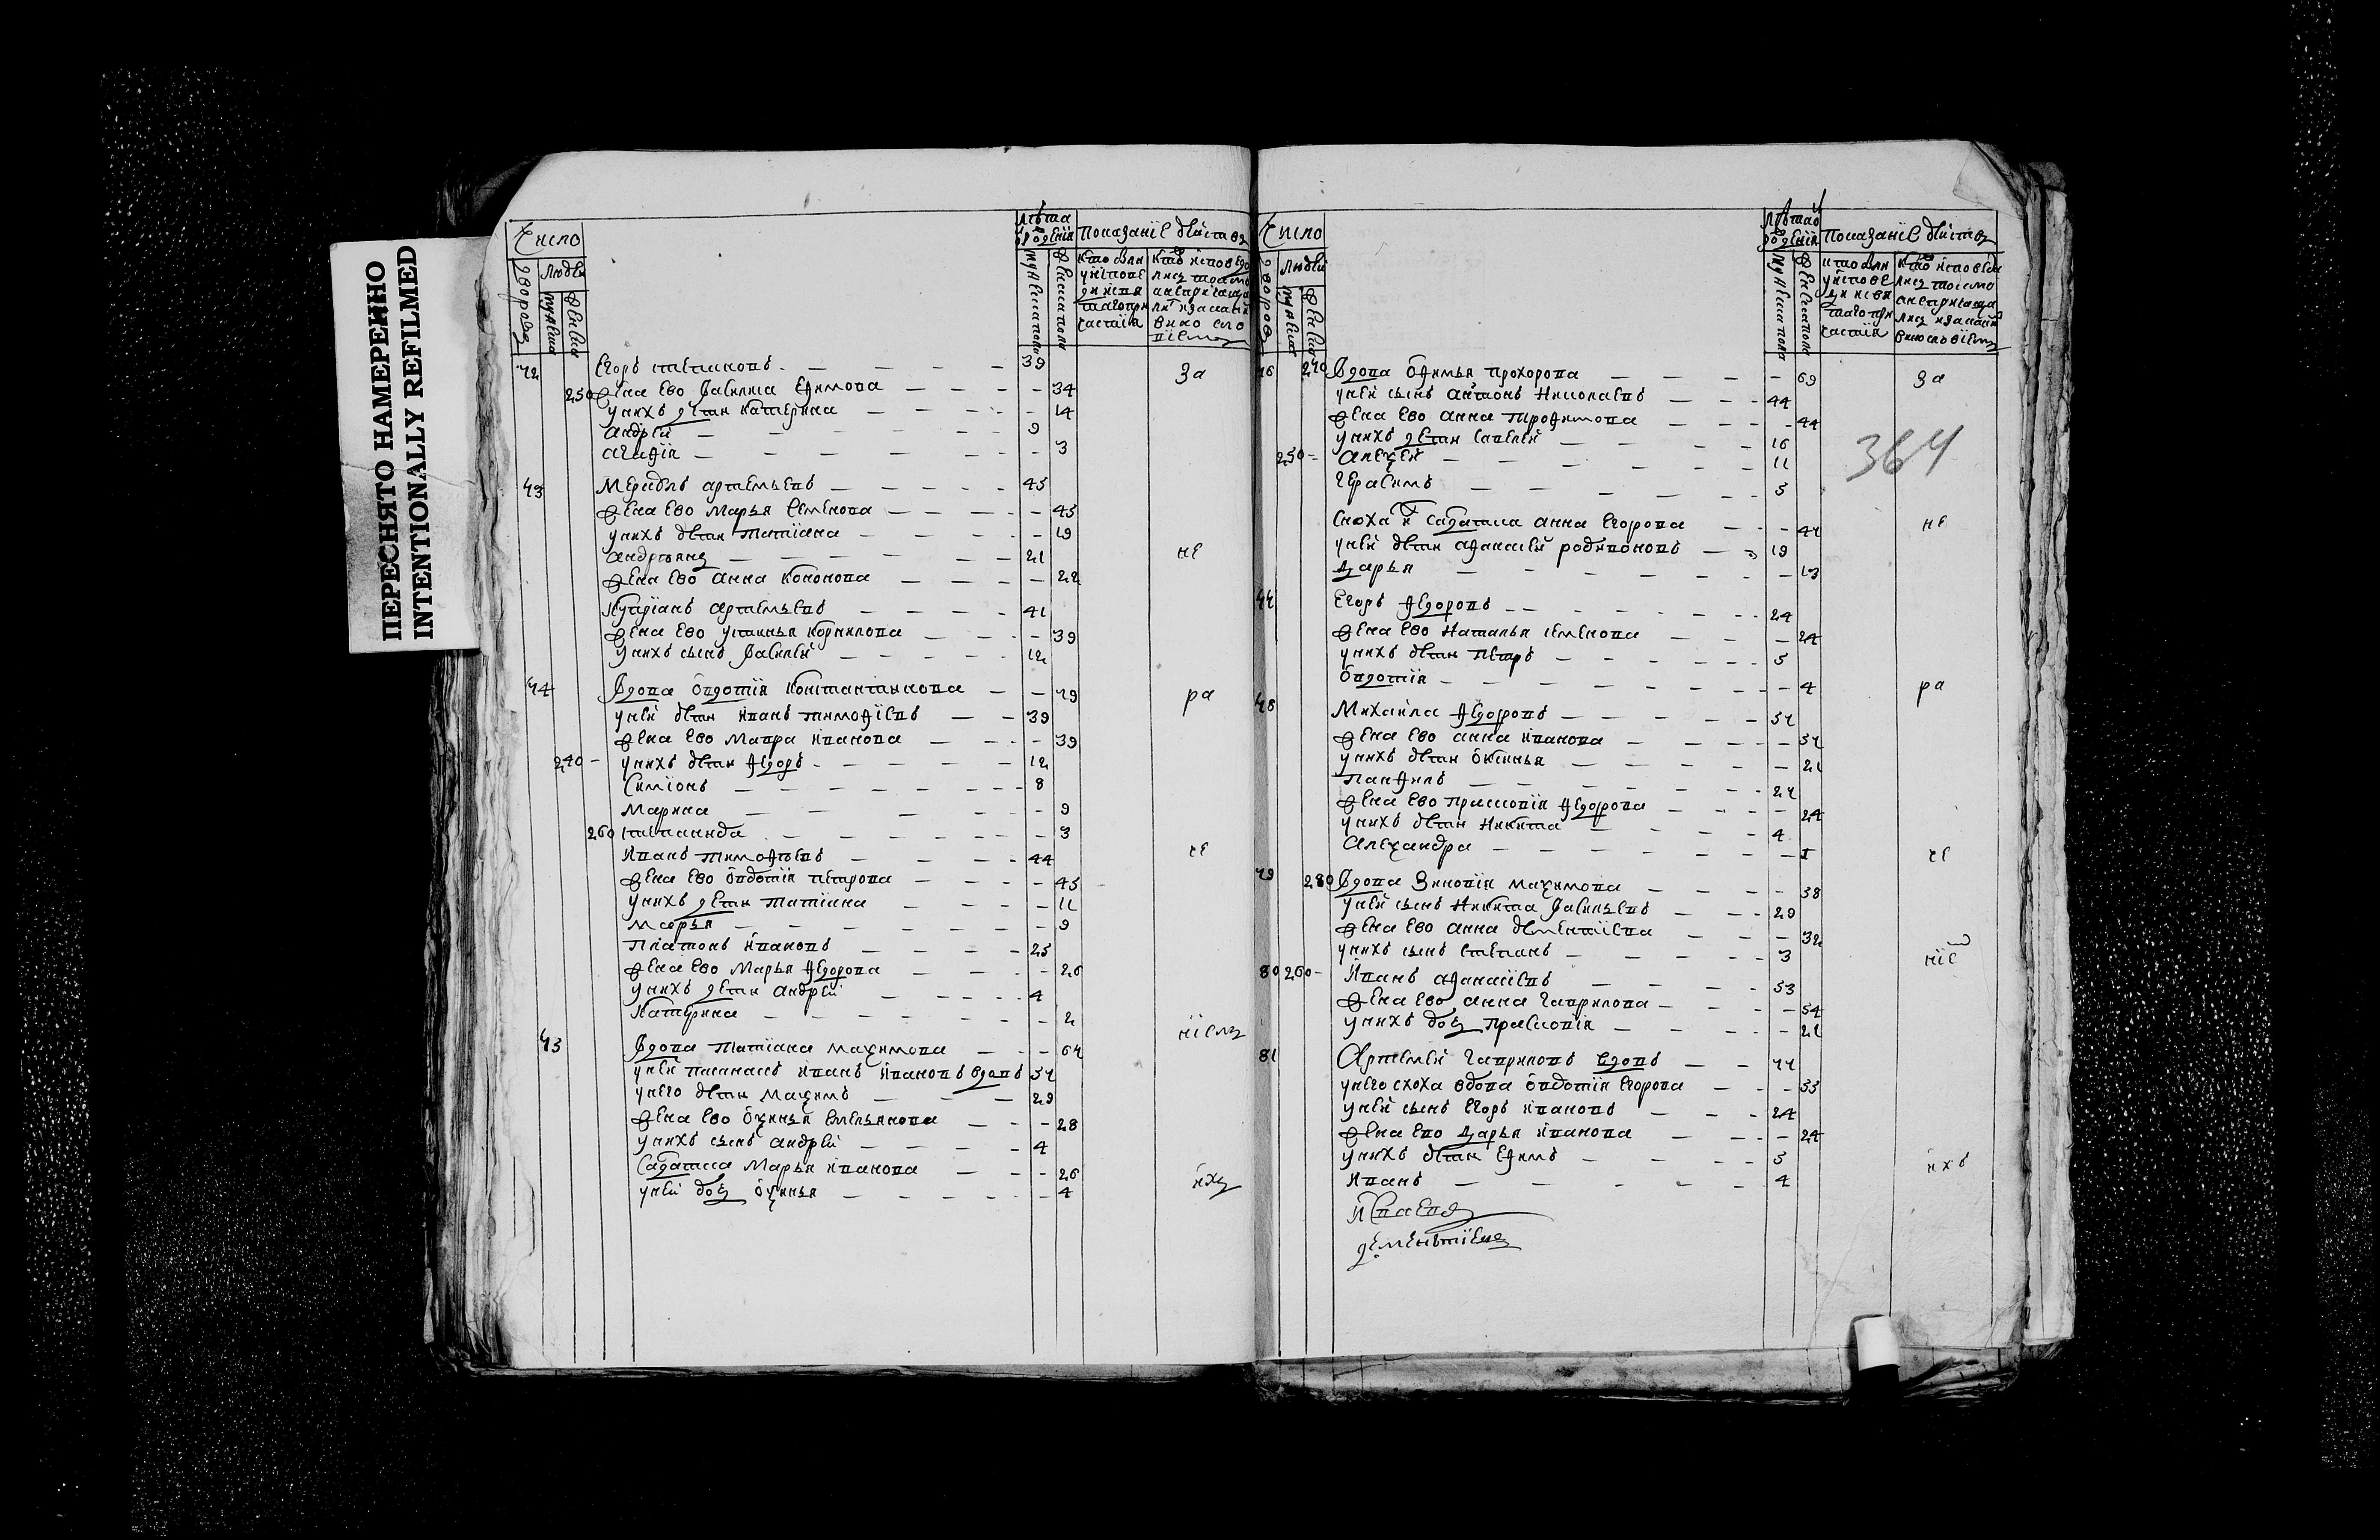 ПЕРЕСНЯТО НАМЕРЕННО
INTENTIONALLY REFILMED
Число
дворовъ
людей
мужеска
женска
лѣта рожденія
мужеска пола
женска пола
показаніе действъ
72 Егоръ степановъ 39 За
250 жена ево Василиса Ефимова 34
у нихъ дети катерина 14
андрей 9
агафія 3
73 Меркулъ артемьевъ 45
жена ево Марья Семенова 45
у нихъ дети татіана 19
андреянъ 21 не
жена ево анна кононова 22
Купріанъ артемьевъ 41
жена ево устинья корнилова 39
у нихъ сынъ Василей 12
74 Вдова овдотія константинова 79 ра
у ней дети иванъ тимофіевъ 39
жена ево мавра иванова 39
240 у нихъ дети федоръ 12
Симіонъ 8
марина 9
260 степанида 3
Иванъ тимофѣевъ 44 че
жена ево овдотія петрова 45
у нихъ дети татіана 11
марья 9
платонъ ивановъ 25
жена ево марья федорова 26
у нихъ дети андрей 4
катерина 2
75 Вдова татіана маѯимова 64 ніемъ
у ней пасынокъ иванъ ивановъ вдовъ 57
у него дети маѯимъ 29
жена ево оѯинья емельянова 28
у нихъ сынъ андрей 4
салдатка марья иванова 26
у ней дочь оѯинья 4 ихъ
364
Число
дворовъ
людей
мужеска
женска
лѣта рожденія
мужеска пола
женска пола
показаніе действъ
76 270 Вдова офимья прохорова 69 За
у ней сынъ антонъ николаевъ 44
жена ево анна трофимова 44
у нихъ дети савелей 16
250 алеѯей 11
герасимъ 5
Сноха и салдатка анна егорова 44 не
у ней дети афанасей родивоновъ 19
дарья 13
77 Егоръ федоровъ 24
жена ево наталья семенова 24
у нихъ дети петръ 5
овдотія 4 ра
78 Михайла федоровъ 57
жена ево анна иванова 57
у нихъ дети оксинья 21
панфилъ 27
жена ево прасковія федорова 24
у нихъ дети никита 4
алеѯандра 1 че
79 280 Вдова Зиновія маѯимова 58
у ней сынъ никита Васильевъ 29
жена ево анна дементіева 32
у нихъ сынъ степанъ 3 ніе
80 260 Иванъ афанасіевъ 53
жена ево анна гаврилова 54
у нихъ дочь прасковія 21
81 Артемей гавриловъ вдовъ 77
у него сноха вдова овдотія егорова 55
у ней сынъ егоръ ивановъ 24
жена ево дарья иванова 24
у нихъ дети ефимъ 5 ихъ
иванъ 4
дементіевъ